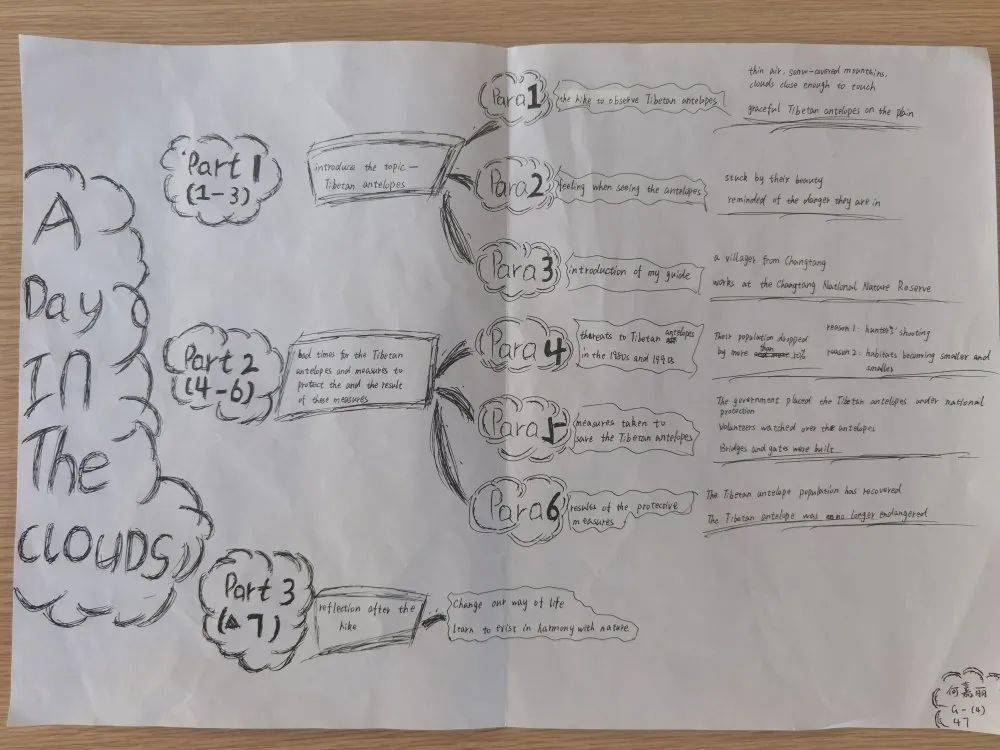 A
Day
IN
The
CLOUDS
Part 1
(1-3)
introduce the topic —
Tibetan antelopes
Para 1
the hike to observe Tibetan antelopes
thin air, sonw-covered mountains,
clouds close enough to touch
graceful Tibetan antelopes on the plain
Para 2
feeling when seeing the antelopes
stuck by their beauty
reminded of the danger they are in
Para 3
introduction of my guide
a villager from Changtang
works at the Changtang National Nature Reserve
Part 2
(4-6)
bad times for the Tibetan
antelopes and measures to
protect the and the result
of these measures
Para 4
thereats to Tibetan antelopes
in the 1980s and 1990s
Their population dropped
by more than 50%
reason 1: hunters' shooting
reason 2: habitats becoming smaller and
smaller
Para 5
measures taken to
save the Tibetan antelopes
The government placed the Tibetan antelopes under national
protection
Volunteers watched over the antelopes
Bridges and gates were built
Para 6
results of the protective
measures
The Tibetan antelope population has recovered
The Tibetan antelope was no longer endangered
Part 3
(7)
reflection after the
hike
Change our way of life
learn to exist in harmony with nature
何嘉丽
G-(4)
47